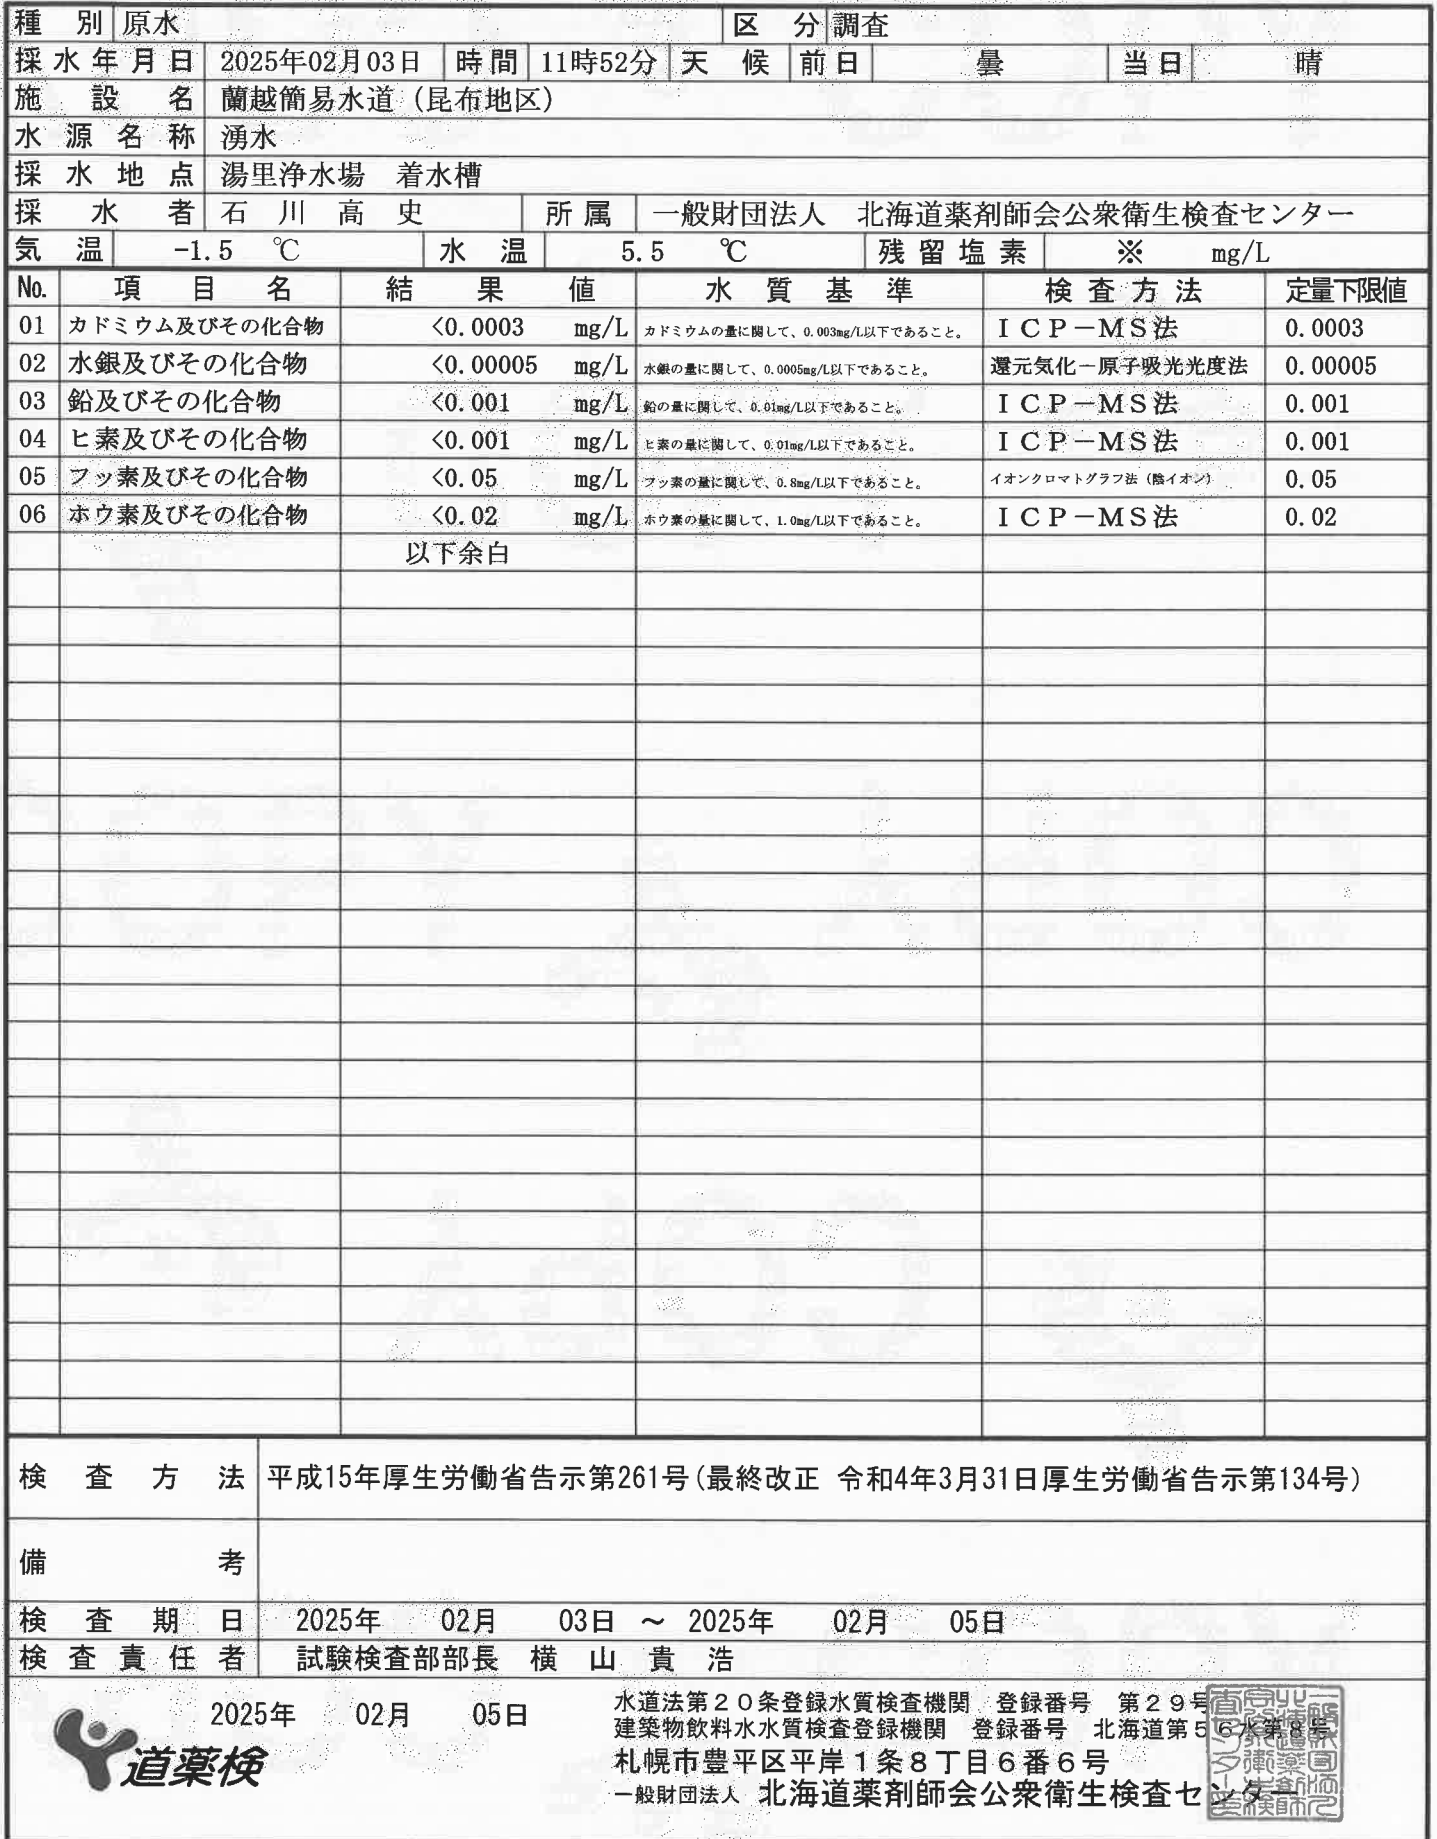 種 別 原水 区 分 調査
採水年月日 2025年02月03日 時間 11時52分 天 候 前日 曇 当日 晴
施 設 名 蘭越簡易水道（昆布地区）
水源名称 湧水
採水地点 湯里浄水場 着水槽
採 水 者 石 川 高 史 所属 一般財団法人 北海道薬剤師会公衆衛生検査センター
気 温 -1.5 ℃ 水 温 5.5 ℃ 残留塩素 ※ mg/L
No. 項 目 名 結 果 値 水 質 基 準 検査方法 定量下限値
01 カドミウム及びその化合物 <0.0003 mg/L カドミウムの量に関して、0.003mg/L以下であること。 ＩＣＰ－ＭＳ法 0.0003
02 水銀及びその化合物 <0.00005 mg/L 水銀の量に関して、0.0005mg/L以下であること。 還元気化－原子吸光光度法 0.00005
03 鉛及びその化合物 <0.001 mg/L 鉛の量に関して、0.01mg/L以下であること。 ＩＣＰ－ＭＳ法 0.001
04 ヒ素及びその化合物 <0.001 mg/L ヒ素の量に関して、0.01mg/L以下であること。 ＩＣＰ－ＭＳ法 0.001
05 フッ素及びその化合物 <0.05 mg/L フッ素の量に関して、0.8mg/L以下であること。 イオンクロマトグラフ法（陰イオン） 0.05
06 ホウ素及びその化合物 <0.02 mg/L ホウ素の量に関して、1.0mg/L以下であること。 ＩＣＰ－ＭＳ法 0.02
以下余白
検 査 方 法 平成15年厚生労働省告示第261号(最終改正 令和4年3月31日厚生労働省告示第134号)
備 考
検 査 期 日 2025年 02月 03日 ～ 2025年 02月 05日
検査責任者 試験検査部部長 横 山 貴 浩
2025年 02月 05日
道薬検
水道法第２０条登録水質検査機関 登録番号 第２９号
建築物飲料水水質検査登録機関 登録番号 北海道第５６水第８号
札幌市豊平区平岸１条８丁目６番６号
一般財団法人 北海道薬剤師会公衆衛生検査センター